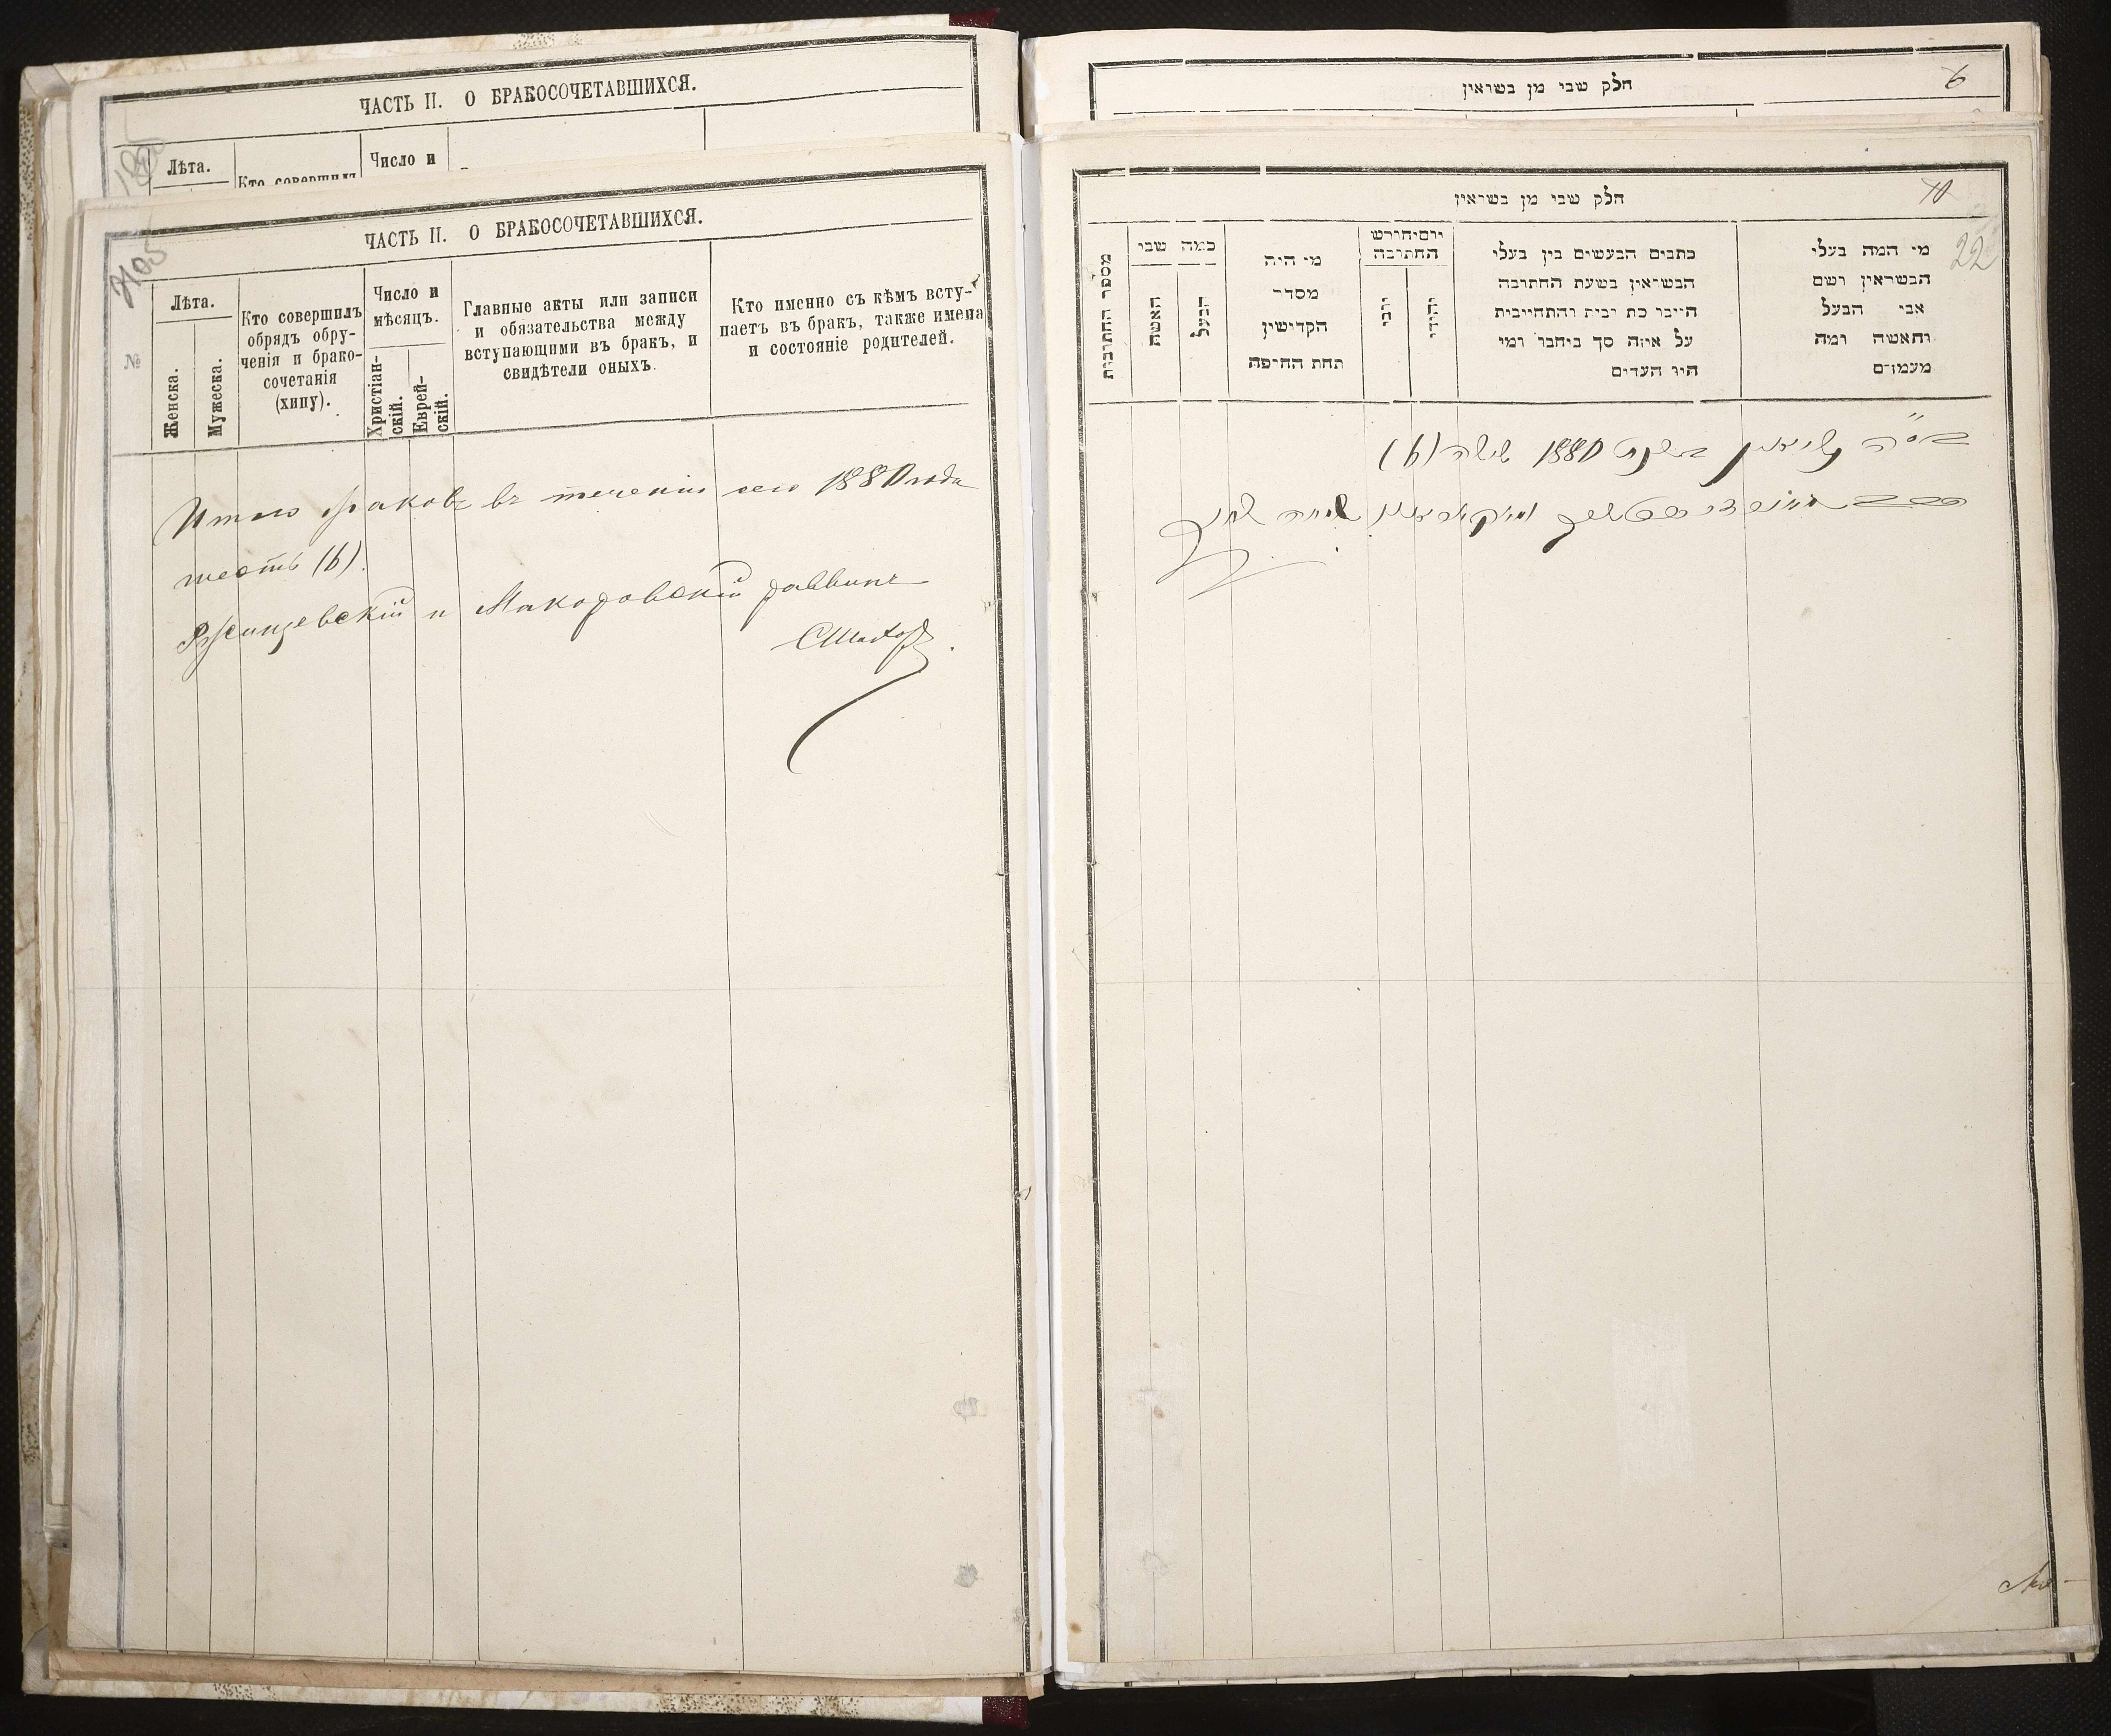 ЧАСТЬ II. О БРАКОСОЧЕТАВШИХСЯ.
Лѣта.
Кто совершилъ
Число и
ЧАСТЬ II. О БРАКОСОЧЕТАВШИХСЯ.
№
Лѣта.
Женска.
Мужеска.
Кто совершилъ
обрядъ обру-
ченія и брако-
сочетанія
(хипу).
Число и
мѣсяцъ.
Христіан-
скій.
Еврей-
скій.
Главные акты или записи
и обязательства между
вступающими въ бракъ, и
свидѣтели оныхъ.
Кто именно съ кѣмъ всту-
паетъ въ бракъ, также имена
и состояніе родителей.
Итого браковъ въ теченіи сего 1880 года
шесть (6).
Ржищевскій и Макаровскій раввинъ
חלק שבי מן בשראין
6
חלק שבי מן בשראין
10
22
מי המה בעלי
הבשראין ושם
אבי הבעל
והאשה ומה
מעמדם
כתבים הבעשים בין בעלי
הבשראין בשעת החתובה
הייבו כת יבית והתחייבית
על איזה סך ביחבו ומי
היו העדים
יום יחודש
החתובה
יהודי
יובי
מי היה
מסדר
הקדישין
תחת החיפה
כמה שבי
הבעל
האשה
מספר החתובות
בס״ה נשואין בשנת 1880 ששה (6)